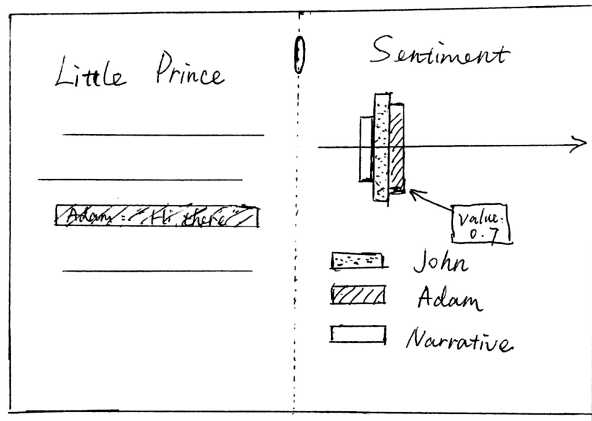 Little Prince
Adam: "Hi, there"
Sentiment
value:
0.7
John
Adam
Narrative